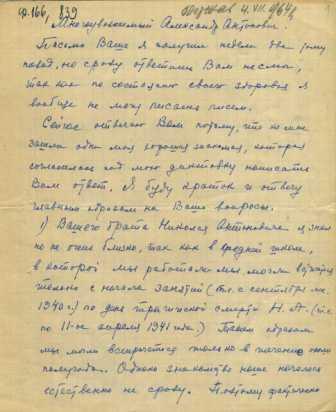 ф. 166, 239 получено 4. XII. 1964 г.
Многоуважаемый Александр Антонович.
Письмо Ваше я получил недели две тому
назад, но сразу ответить Вам не смог,
так как по состоянию своего здоровья я
вообще не могу писать писем.
Сейчас отвечаю Вам потому, что ко мне
зашла одна моя хорошая знакомая, которая
согласилась под мою диктовку написать
Вам ответ. Я буду краток и отвечу
главным образом на Ваши вопросы.
1) Вашего брата Николая Антоновича я знал
но не очень близко, так как в средней школе,
в которой мы работали мы могли встречаться
только с начала занятий (т.е. с сентября м.
1940 г.) по день трагической смерти Н. А. (т.е.
по 11-ое апреля 1941 года.) Таким образом
мы могли встречаться только в течение
полугода. Однако знакомство наше началось
естественно не сразу. Поэтому фактически